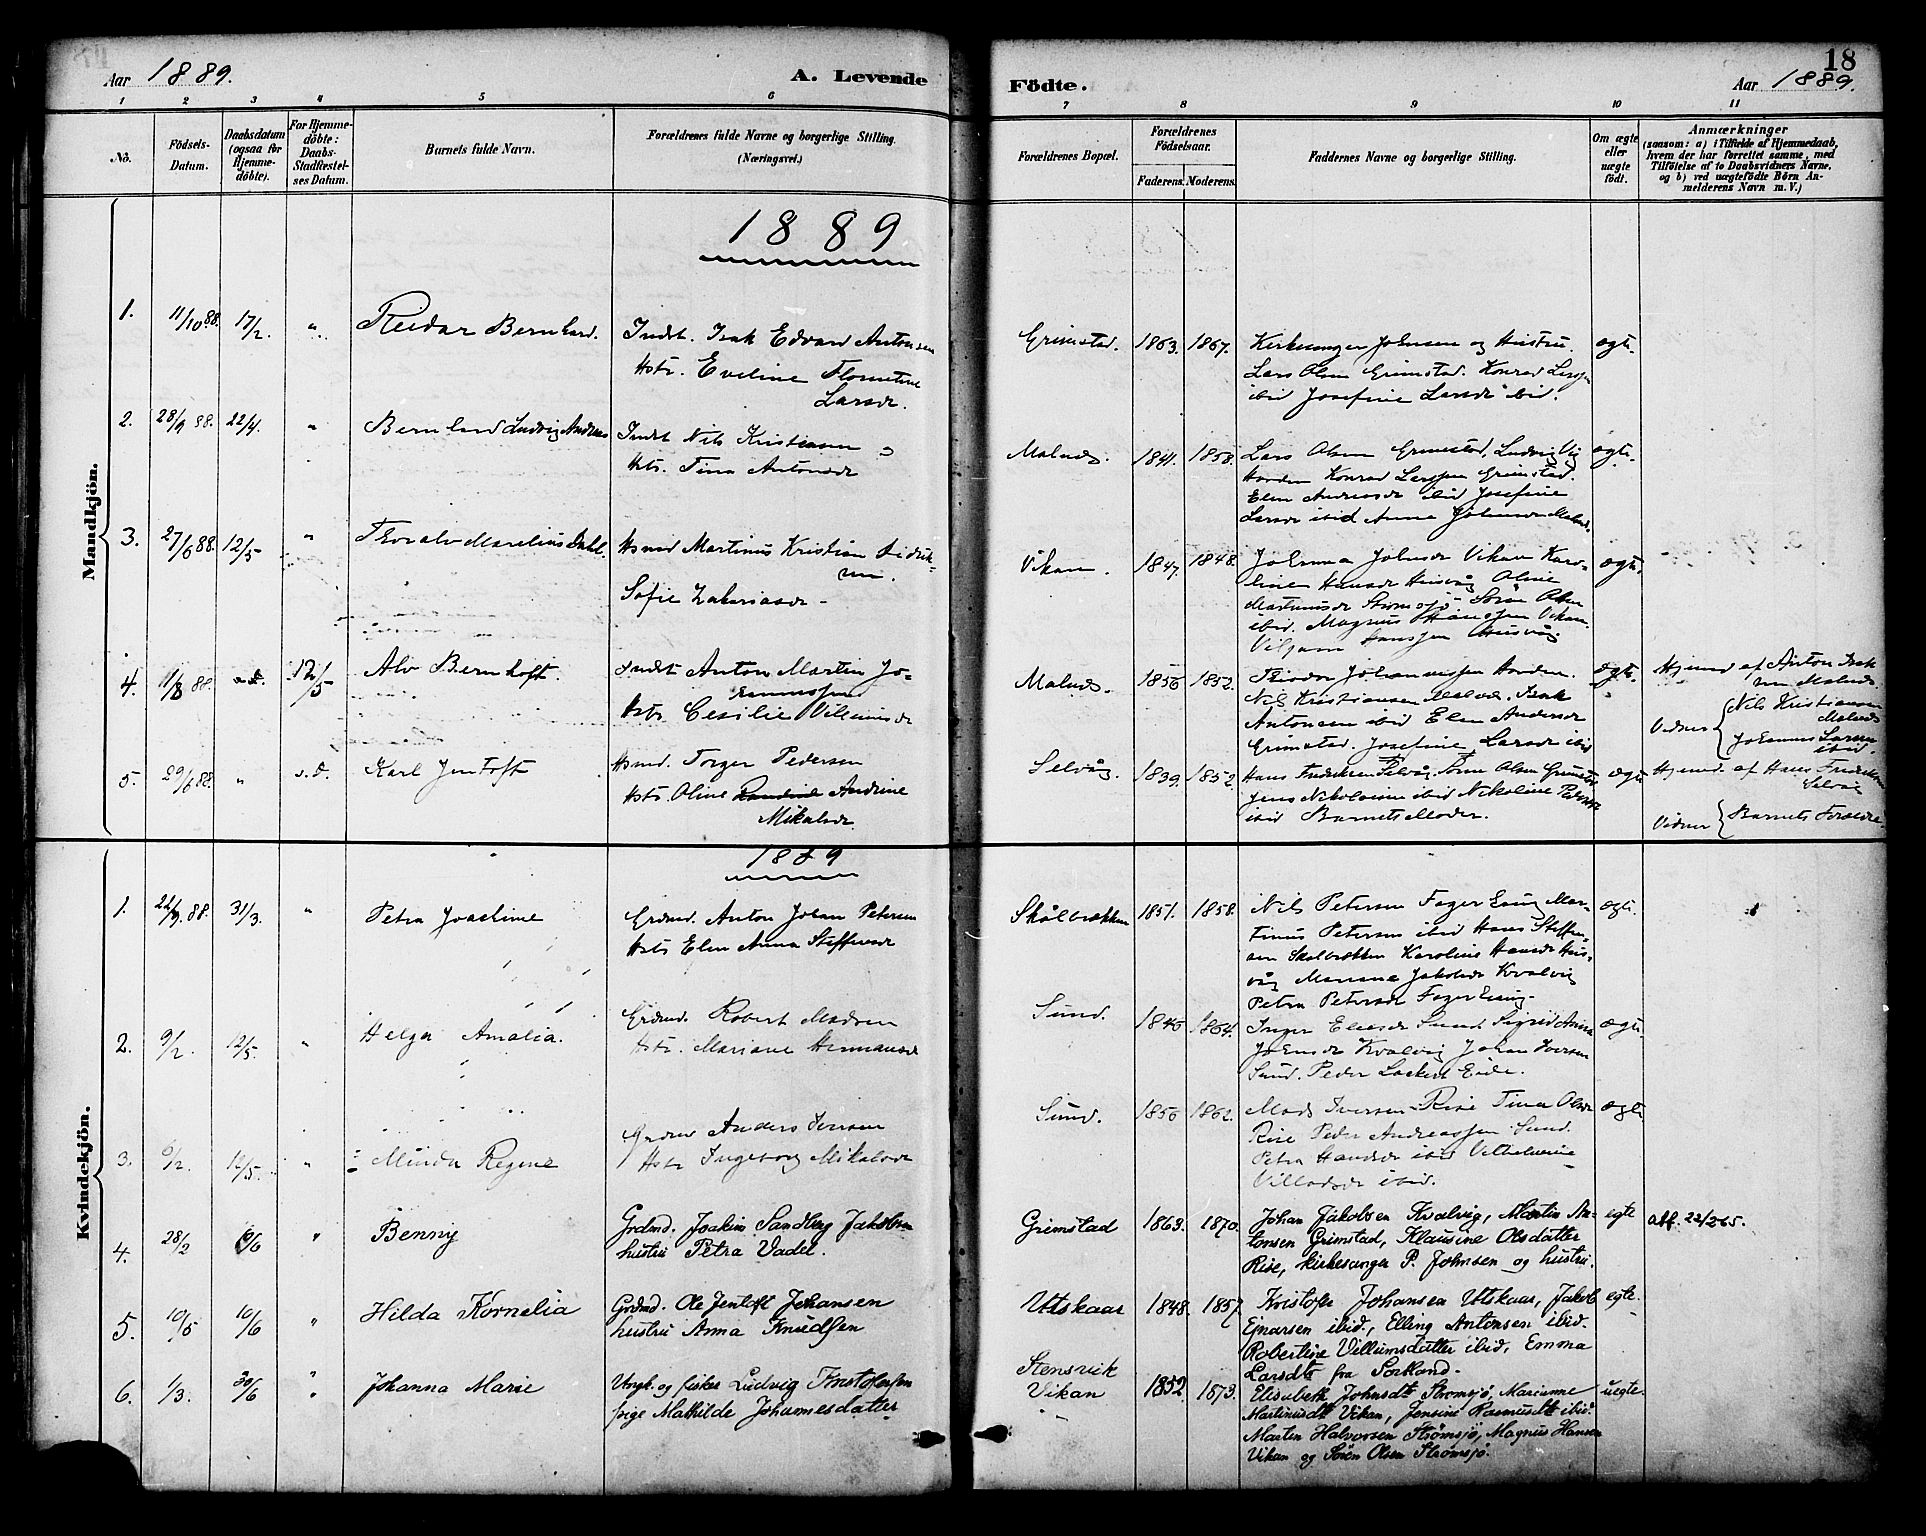 Aar 1889.
A. Levende
Födte.
18
Aar 1889.
1 2 3 4 5 6 7 8 9 10 11
No.
Födsels-
Datum.
Daabsdatum
(ogsaa for
Hjemme-
döbte).
For Hjemme-
döbte:
Daabs-
Stadfæstel-
ses Datum.
Barnets fulde Navn.
Forældrenes fulde Navne og borgerlige Stilling.
(Næringsvei.)
Forældrenes Bopæl.
Forældrenes
Födselsaar.
Faderens. Moderens.
Faddernes Navne og borgerlige Stilling.
Om ægte
eller
uægte
födt.
Anmærkninger
(saasom: a) i Tilfælde af Hjemmedaab,
hvem der har forrettet samme, med
Tilföielse af to Daabsvidners Navne,
og b) ved uægtefödte Börn An-
melderens Navn m. V.)
Mandkjön.
1889
1. 11/10 88. 17/2 " Reidar Bernhard.
Indst. Isak Edvard Antonsen
Hstr. Eveline
Larsdr.
Grimstad. 1863. 1867.
Kirkesanger Johnsen og Hustru.
Lars Olsen Grimstad. Konrad Larssen
ibid Josefine Larsdr ibid.
ægte.
2. 28/9 88. 22/4. " Bernhard Ludvig Andreas
Indst Nils Kristiansen
Hstr. Tina Antonsdr
Malnes. 1841. 1853.
Lars Olsen Grimstad, Ludvig
Konrad Larssen Grimstad.
Elen Andreasdr ibid Josefine
Larsdr ibid Anna Johnsdr Malnes.
ægte.
3. 27/6 88. 12/5 " Toralv Marelius Dahl.
Hsmd Martinus Kristian Didrik-
sen.
Sofie Zakariasdr
Vikan. 1847. 1848.
Johanna Johnsdr Vikan Karo-
line Hansdr Husvåg Oline
Martinusdr Strømsjø. Sören Olsen
ibid. Magnus Hanssen Vikan.
Hanssen Husvåg
ægte.
4. 11/8 88. 12/5 Alv Bernhoft.
Indst Anton Martin Jo-
hannessen
Hstr. Cesilie Villumsdr
Malnes. 1856 1852.
Teodor Johannessen
Nils Kristiansen Malnes. Isak
Antonsen ibid Elen Andersdr
Grimstad. Josefine Larsdr ibid
ægte.
Hjemmd af Anton Isak
sen Malnes.
Vidner Nils Kristiansen
Malnes
Johannes Larsen
ibid.
5. 29/6 88. " s.d. Karl Jentoft
Hsmd. Torger Pedersen
Hstr. Oline Andrine
Mikalsdr
Selvåg. 1839. 1852.
Hans Fredriksen Selvåg. Sören Olsen Grimstad
Jens Nikolaisen ibid Nikoline Pedersdr
ibid Barnets Moder.
ægte
Hjemmd. af Hans Fredriksen
Selvåg
Vidner Barnets Forældre.
Kvindekjön.
1889
1. 22/9. 88. 31/3. " Petra Joachime
Grdmd. Anton Johan Petersen
Hstr Elen Anna Steffensdr
Skålbrækken 1851. 1858.
Nils Petersen Fagereng Mar-
tinus Petersen ibid Hans Steffen-
sen Skålbrækken Karoline Hansdr Hus-
våg Mariane Jakobsdr Kvalvig
Petra Petersdr Fagereng.
ægte.
2. 9/2. 12/5. " Helga Amalia.
Grdmd. Robert Madsen
Hstr. Mariane Hermansdr
Sund. 1846 1864.
Inger Eliasdr Sund Sigrid Anna
Johnsdr Kvalvig Johan Iversen
Sund. Peder Lockert Eide.
ægte.
3. 6/2. 12/5. " Minda Regine
Grdmd Anders Iversen
Hstr Ingeborg Mikalsdr
Sund. 1856 1862.
Mads Iversen Rise Tina Olsdr
Rise Peder Andreassen Sund.
Petra Hansdr ibid Vilhelmine
Villadsdr ibid.
ægte
4. 28/2 6/6 " Benny
Grdmd. Joakim Sandberg Jakobsen
hustru Petra Vadel.
Grimstad 1863. 1870.
Johan Jakobsen Kvalvig, Martin An-
tonsen Grimstad, Klausine Olsdatter
Rise, kirkesanger P. Johnsen og hustru.
egte
att. 22/2 65.
5. 10/5 10/6 " Hilda Kornelia
Grdmd. Ole Jentoft Johansen
hustru Anna Knudsen
Utskaar 1848. 1857.
Kristofer Johansen Utskaar, Jakob
Ejnarsen ibid., Elling Antonsen ibid.
Robertine Villumsdatter ibid, Emma
Larsdt fra Sortland.
egte.
6. 1/3. 30/6 " Johanna Marie
Ungk. og fisker Ludvig Kristofersen
pige Mathilde Johannesdatter
Stensvik
Vikan 1852. 1873.
Elisabeth Johnsdt Strømsjø, Marianne
Martinusdt Vikan, Jensine Rasmusdt ibid.
Martin Halvorsen Strømsjø, Magnus Hansen
Vikan og Sören Olsen Strømsjø.
uegte.